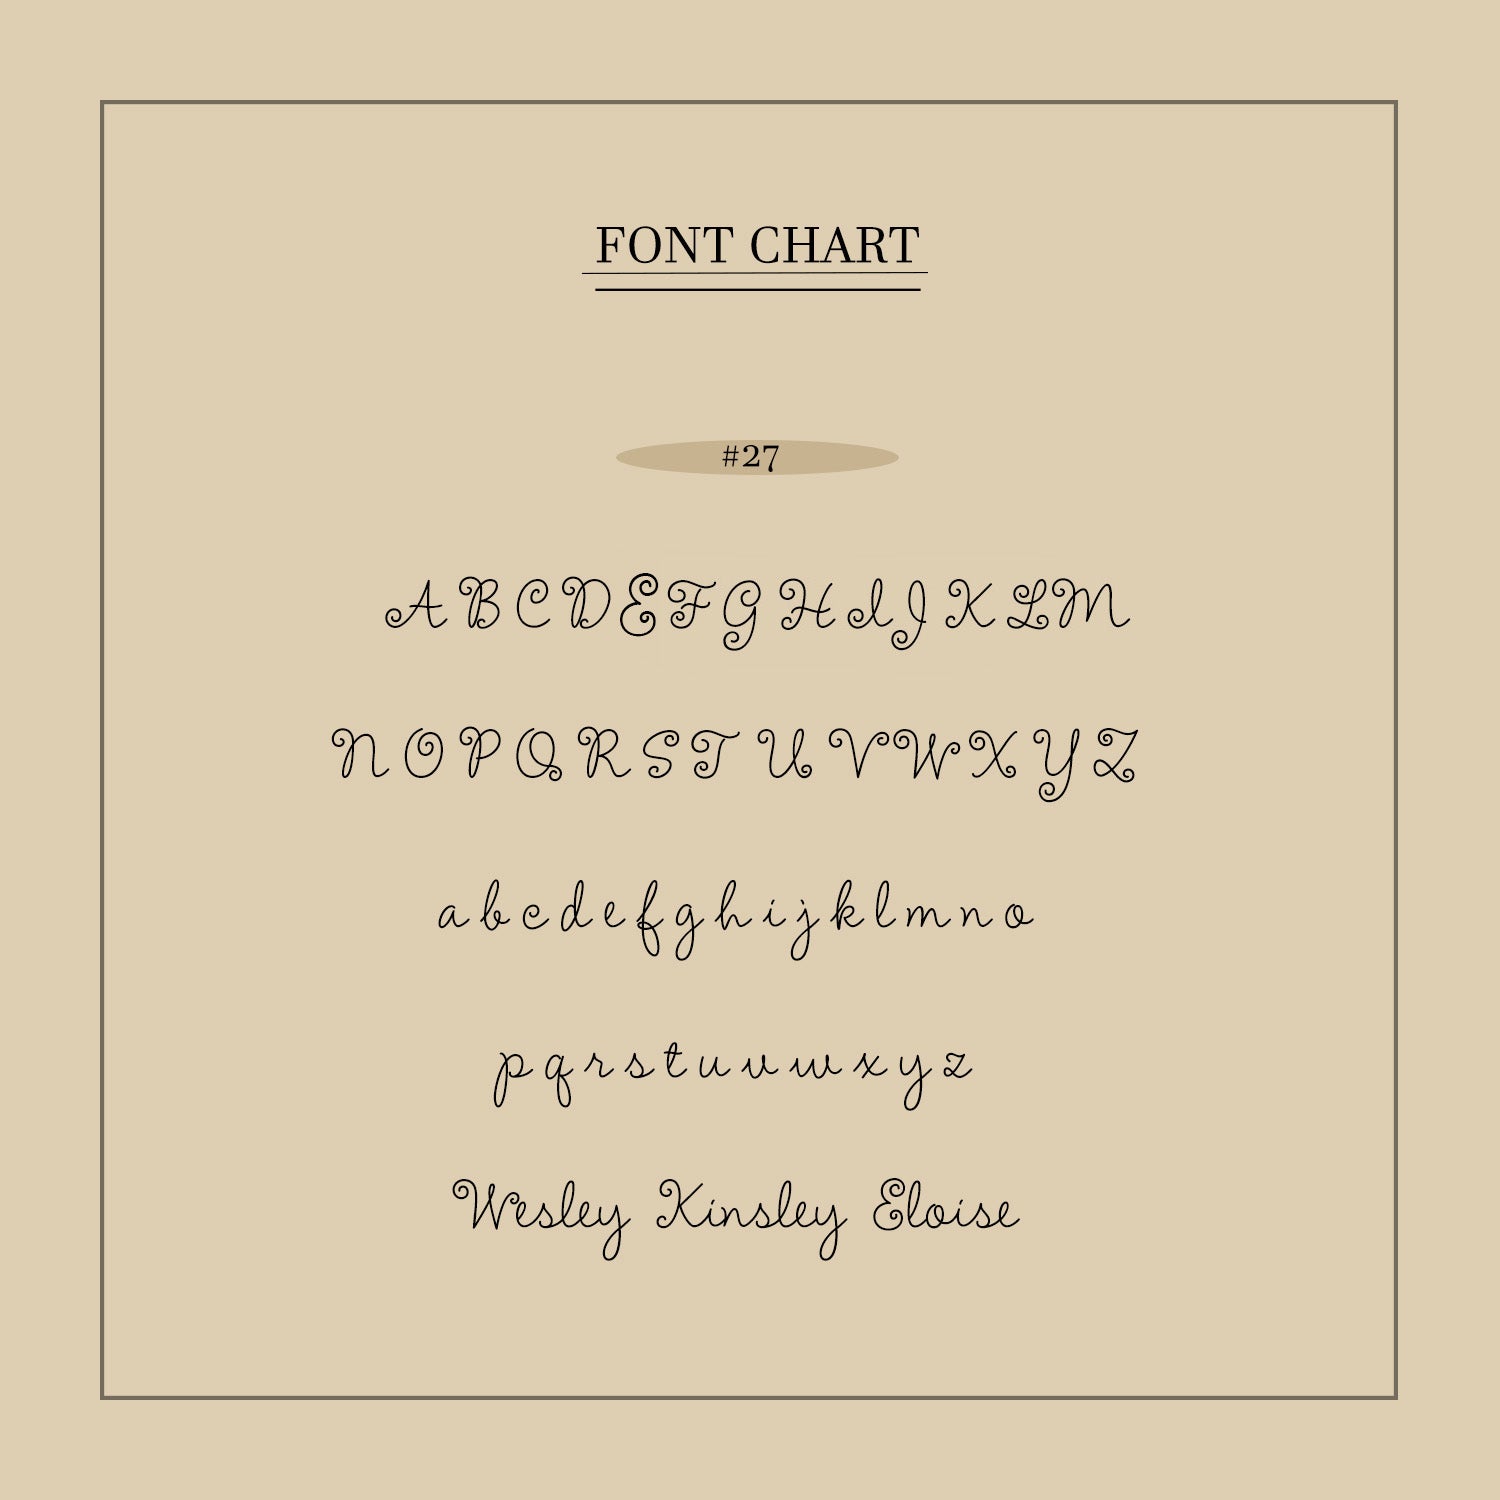 FONT CHART
#27
A B C D E F G H I J K L M
N O P Q R S T U V W X Y Z
a b c d e f g h i j k l m n o
p q r s t u v w x y z
Wesley Kinsley Eloise